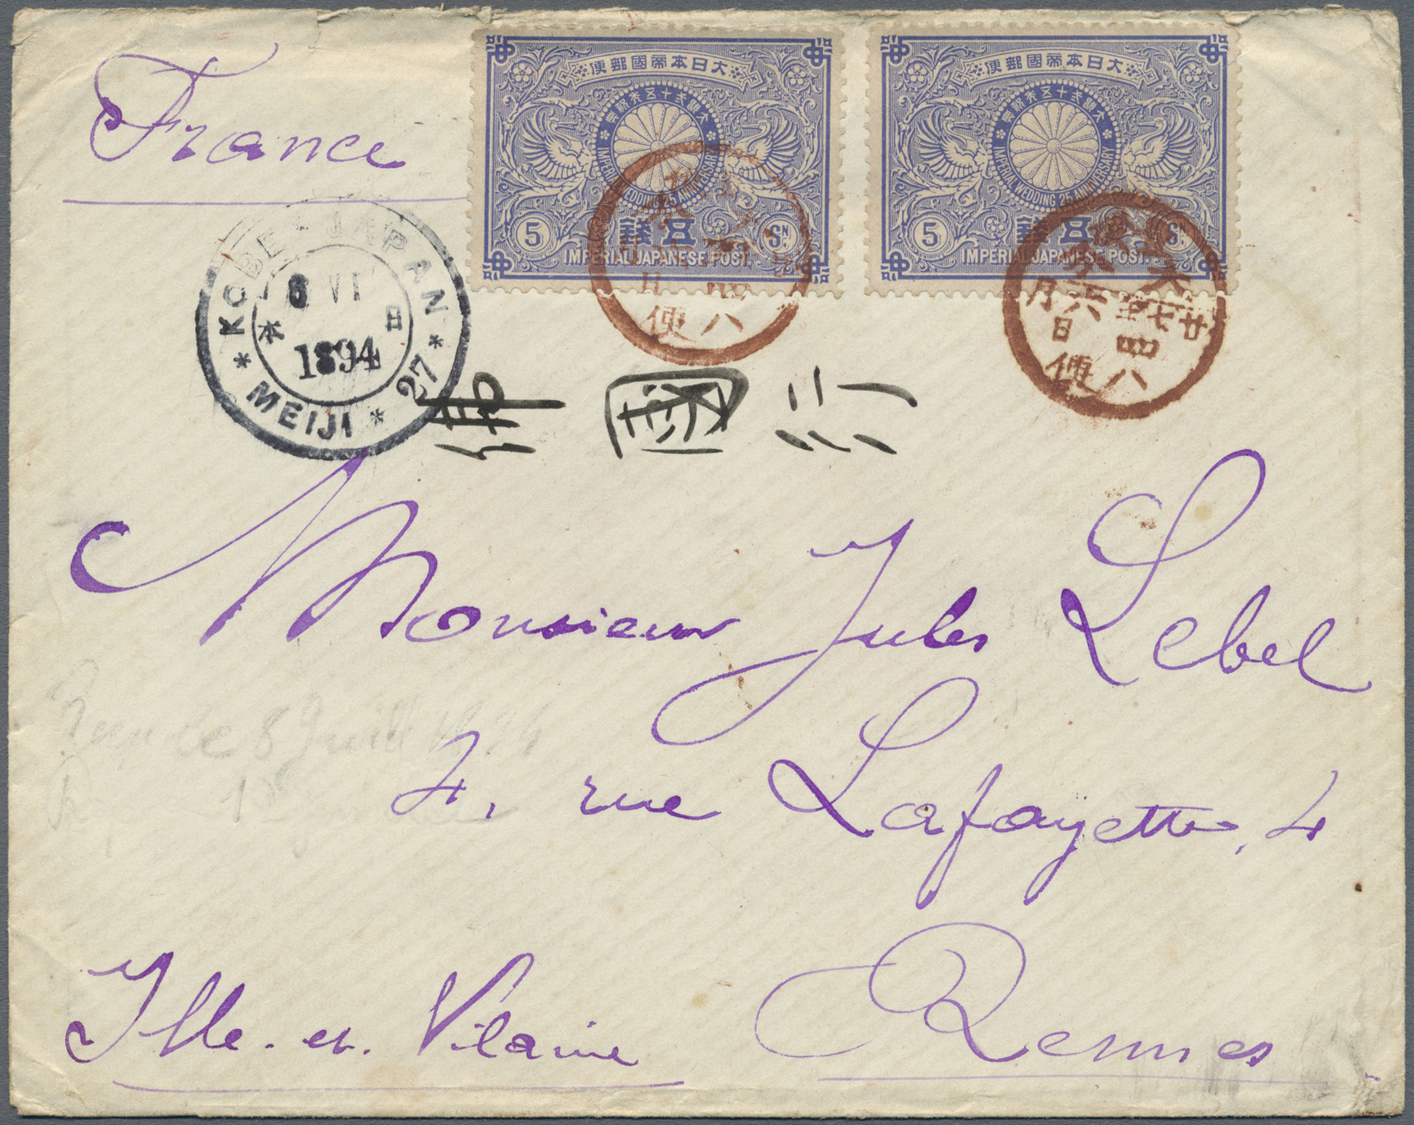 France
大日本帝國郵便
大婚二十五年祝典
IMPERIAL WEDDING 25 ANNIVERSARY
5 五錢 5Sn.
IMPERIAL JAPANESE POST.
大日本帝國郵便
大婚二十五年祝典
IMPERIAL WEDDING 25 ANNIVERSARY
5 五錢 5Sn.
IMPERIAL JAPANESE POST.
KOBE - JAPAN
6 VI
本 日
1894
* MEIJI * 27 *
廿七
六月
四
八便
日
佛國行
Monsieur Jules Lebel
4, rue Lafayette, 4
Ille-et-Vilaine Rennes
8 Juill